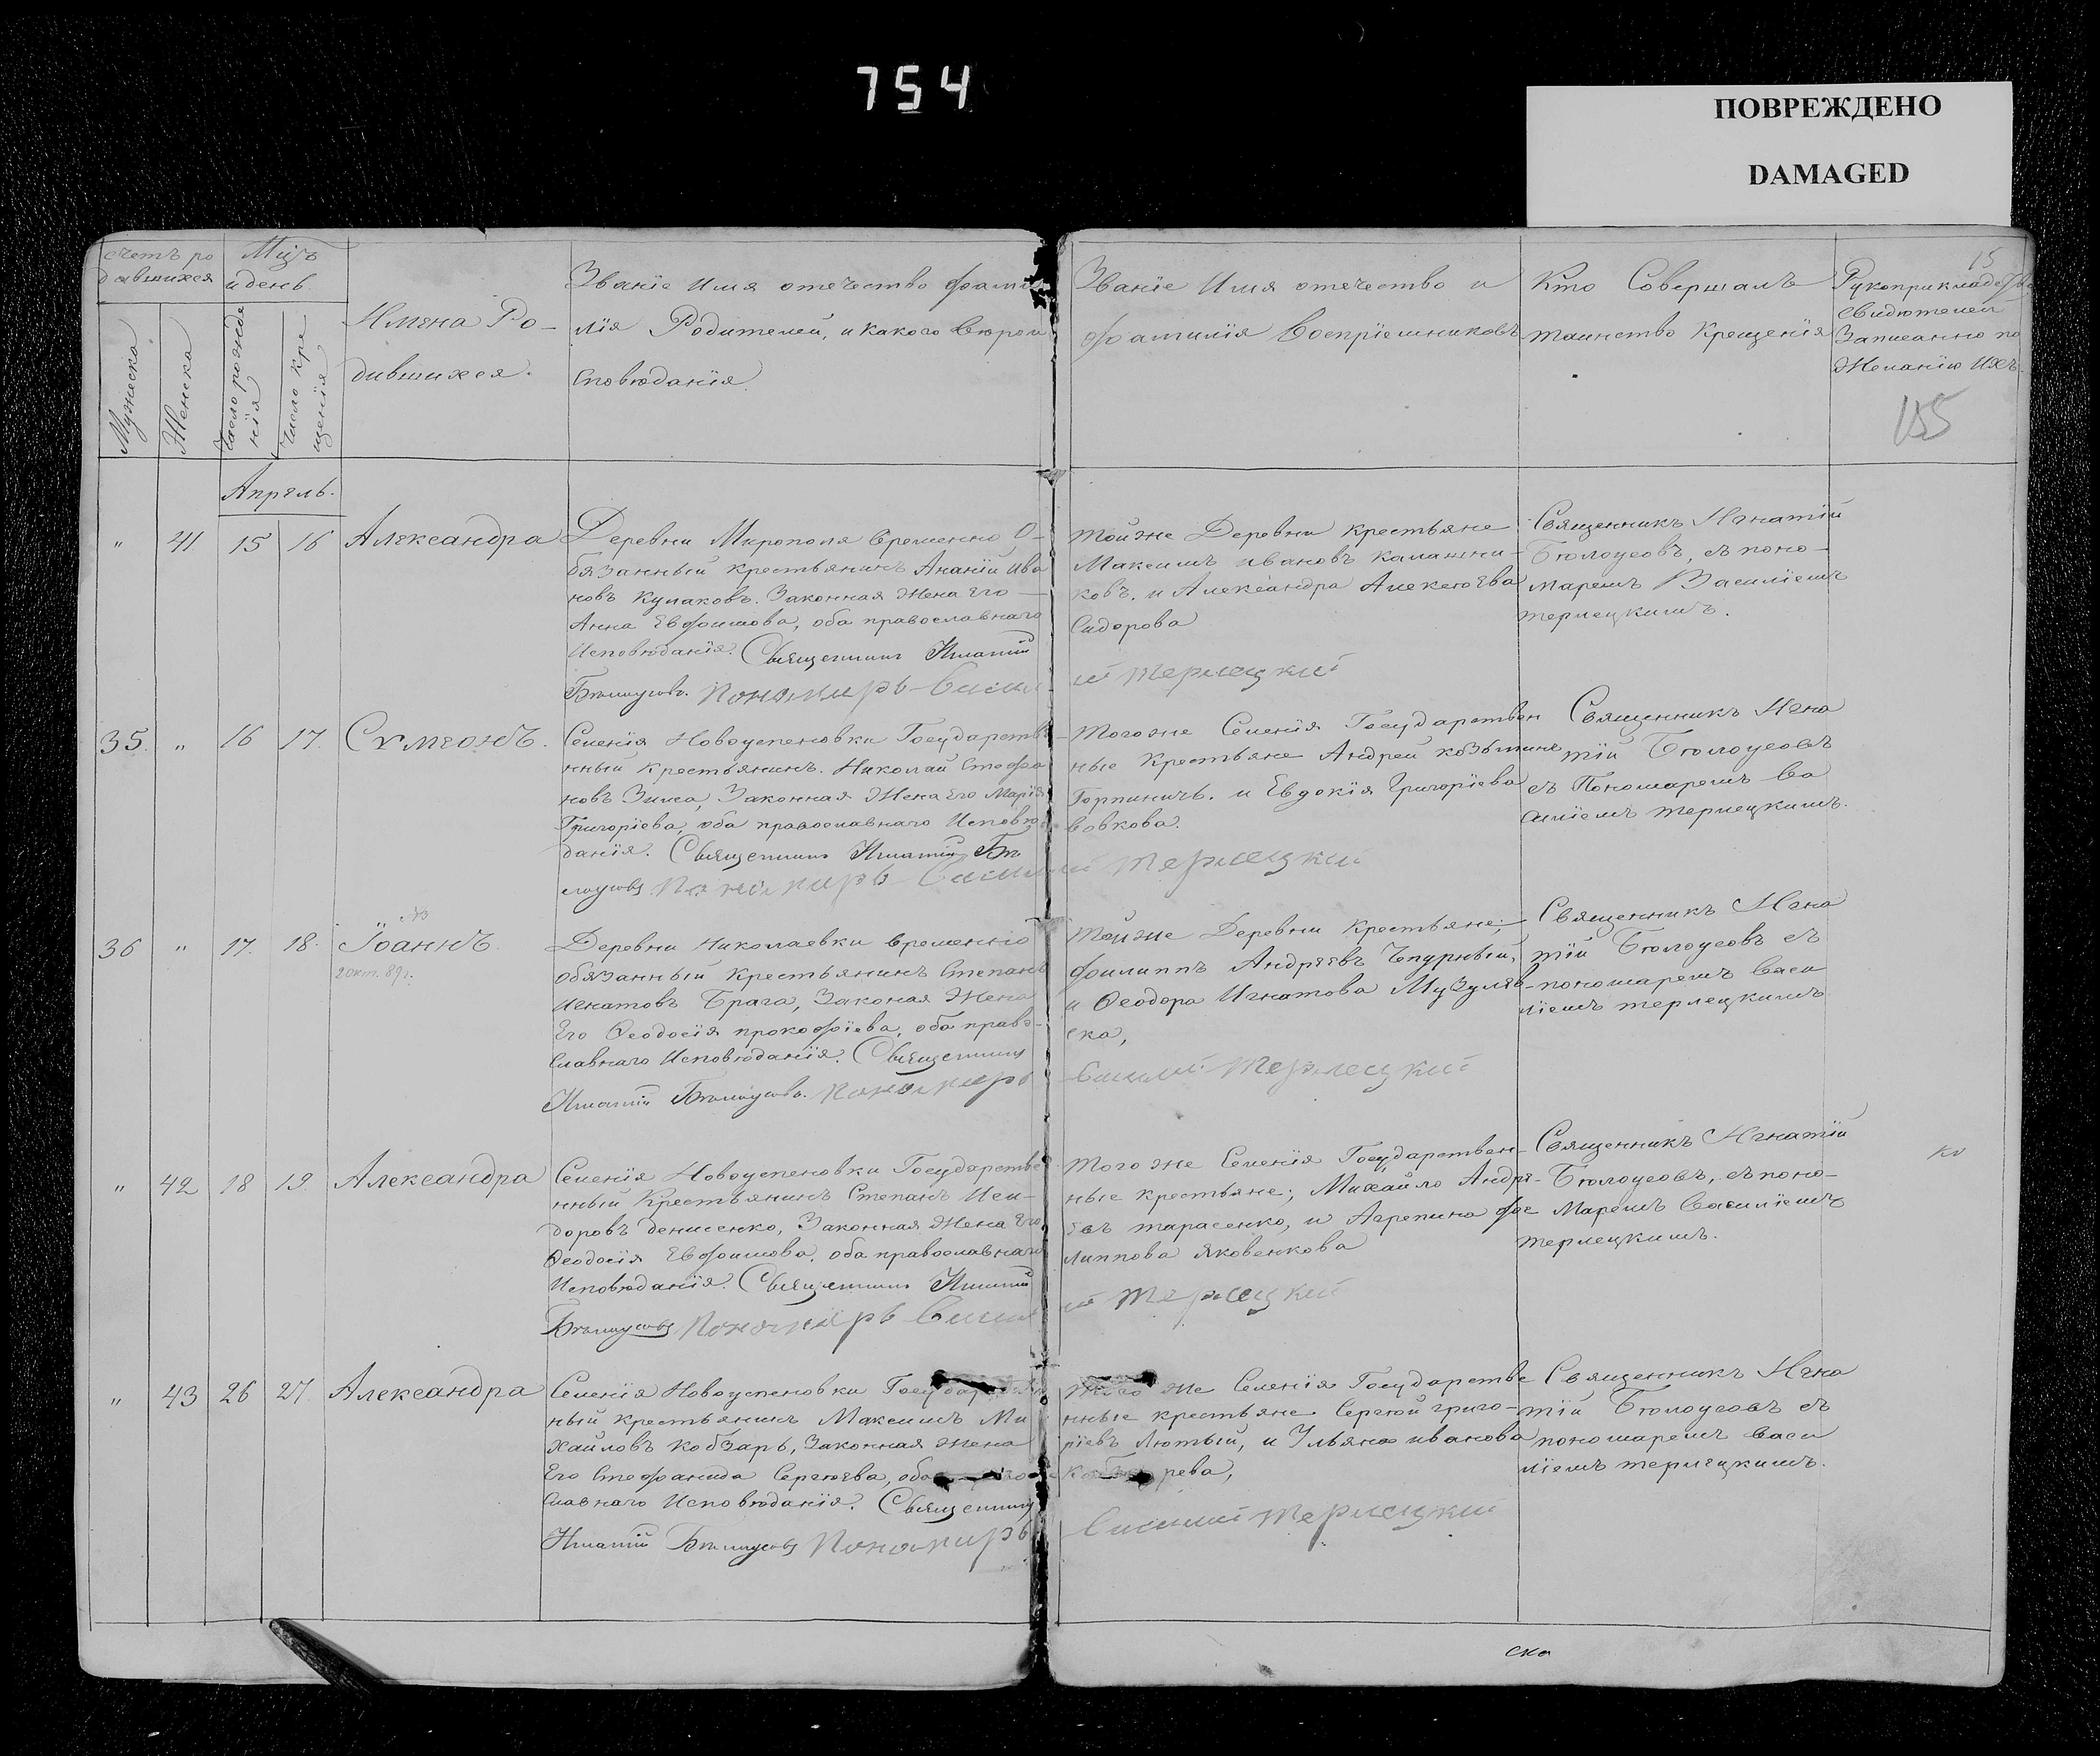 754
ПОВРЕЖДЕНО
DAMAGED
15
счетъ ро
дившихся
Мцъ
и день
Мужеска
Женска
Число рожде
нія
Число кре
щенія
Имена Ро-
дившихся.
Званіе Имя отечество фами
лія Родителей, и какого вѣрои
сповѣданія
Званіе Имя отечество и
фамилія Воспріемниковъ
Кто Совершалъ
таинство Крещенія
Рукоприкладство
свидѣтелей
Записанно по
Желанію Ихъ.
155
Апрель.
" 41 15 16 Александра
Деревни Мирополя временно О-
бязанный крестьянинъ Ананій Ива
новъ Кулаковъ. Законная Жена Его
Анна Евфимова, оба православнаго
Исповѣданія. Священникъ Игнатій
Бѣлоусовъ. Пономарь Васил
тойже Деревни крестьяне
Максимъ ивановъ Калашни-
ковъ. и Александра Алексѣева
Сидорова
ій Терлецкій
Священникъ Игнатій
Бѣлоусовъ, съ поно-
маремъ Василіемъ
терлецкимъ.
35. " 16 17. Сѵмеонъ.
Селенія Новоуспеновки Государстве-
нный крестьянинъ. Николай Стефа
новъ Зима, Законная Жена Его Марія
Григоріева, оба православнаго Исповѣ
данія. Священникъ Игнатій Бѣ
лоусовъ Пономарь Васил
Того же Селенія Государствен
ные Крестьяне Андрей козьминъ
Горпиничъ. и Евдокія Григоріева
вовкова.
ій Терлецкій
Священникъ Игна
тій Бѣлоусовъ
съ Пономаремъ Ва
силіемъ терлецкимъ.
№
36 " 17. 18. Іоаннъ.
2 окт. 89 г.
Деревни Николаевки временно
обязанный крестьянинъ Степанъ
Игнатовъ Брага, Законая Жена
Его Феодосія прокофіева, оба право-
славнаго Исповѣданія. Священникъ
Игнатій Бѣлоусовъ. Пономарь
Тойже Деревни Крестьяне;
Филиппъ Андреевъ Чепурный,
и Феодора Игнатова Музулев-
ска,
Василій Терлецкій
Священникъ Игна
тій Бѣлоусовъ съ
пономаремъ Васи
ліемъ терлецкимъ
" 42 18 19 Александра
Селенія Новоуспеновки Государстве
нный Крестьянинъ Степанъ Иси-
доровъ денисенко, Законная Жена Его
Феодосія Евфимова, оба православнаго
Исповѣданія. Священникъ Игнатій
Бѣлоусовъ Пономарь Васил
Того же Селенія Государствен-
ные крестьяне; Михайло Андре-
евъ тарасенко, и Агрепина фи
липпова Яковенкова
ій Терлецкій
Священникъ Игнатій
Бѣлоусовъ, съ поно-
Маремъ Василіемъ
терлецкимъ.
" 43 26 27 Александра
Селенія Новоуспеновки Государствен
ный крестьянинъ Максимъ Ми
хайловъ кобзарь, Законная Жена
Его Стефанида Сергѣева, оба
славнаго Исповѣданія. Священникъ
Игнатій Бѣлоусовъ Пономарь
Того же Селенія Государстве
нные крестьяне Сергѣй григо-
ріевъ Лютый, и Ульяна иванова
рева,
Василій Терлецкій
Священникъ Игна
тій Бѣлоусовъ съ
пономаремъ Васи
ліемъ терлецкимъ.
ска